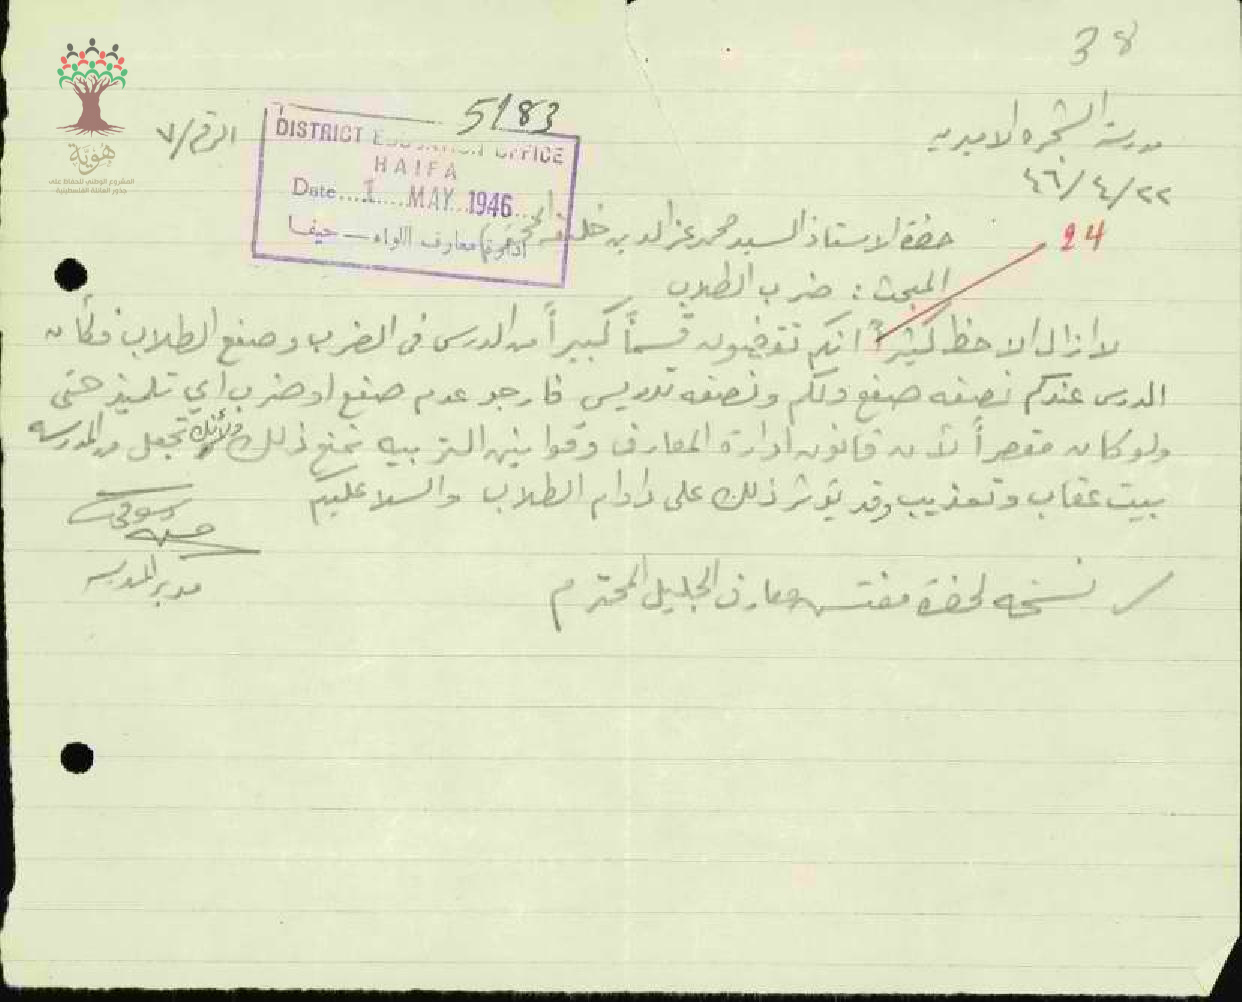 38
مدرسة الشجره الاميريه
الرقم/٧
٢٢/٤/٤٦
5/83
DISTRICT EDUCATION OFFICE
HAIFA
Date.... 1 ... MAY 1946...
ادارة معارف اللواء — حيفا
24
حضرة الاستاذ السيد محمد عز الدين خليفه المحترم
المبحث : ضرب الطلاب
لا ازال الاحظ كثيراً انكم تقضون قسماً كبيراً من الدرس في الضرب وصفع الطلاب فكأن
الدرس عندكم نصفه صفع ولكم ونصفه تدريس فارجو عدم صفع او ضرب اي تلميذ حتى
ولو كان مقصراً لأن قانون ادارة المعارف وقوانين التربيه تمنع ذلك ولأنك تجعل من المدرسه
بيت عقاب وتعذيب وقد يؤثر ذلك على دوام الطلاب والسلام عليكم
مدير المدرسه
نسخه لحضرة مفتش معارف الجليل المحترم
هوية
المشروع الوطني للحفاظ على
جذور العائلة الفلسطينية